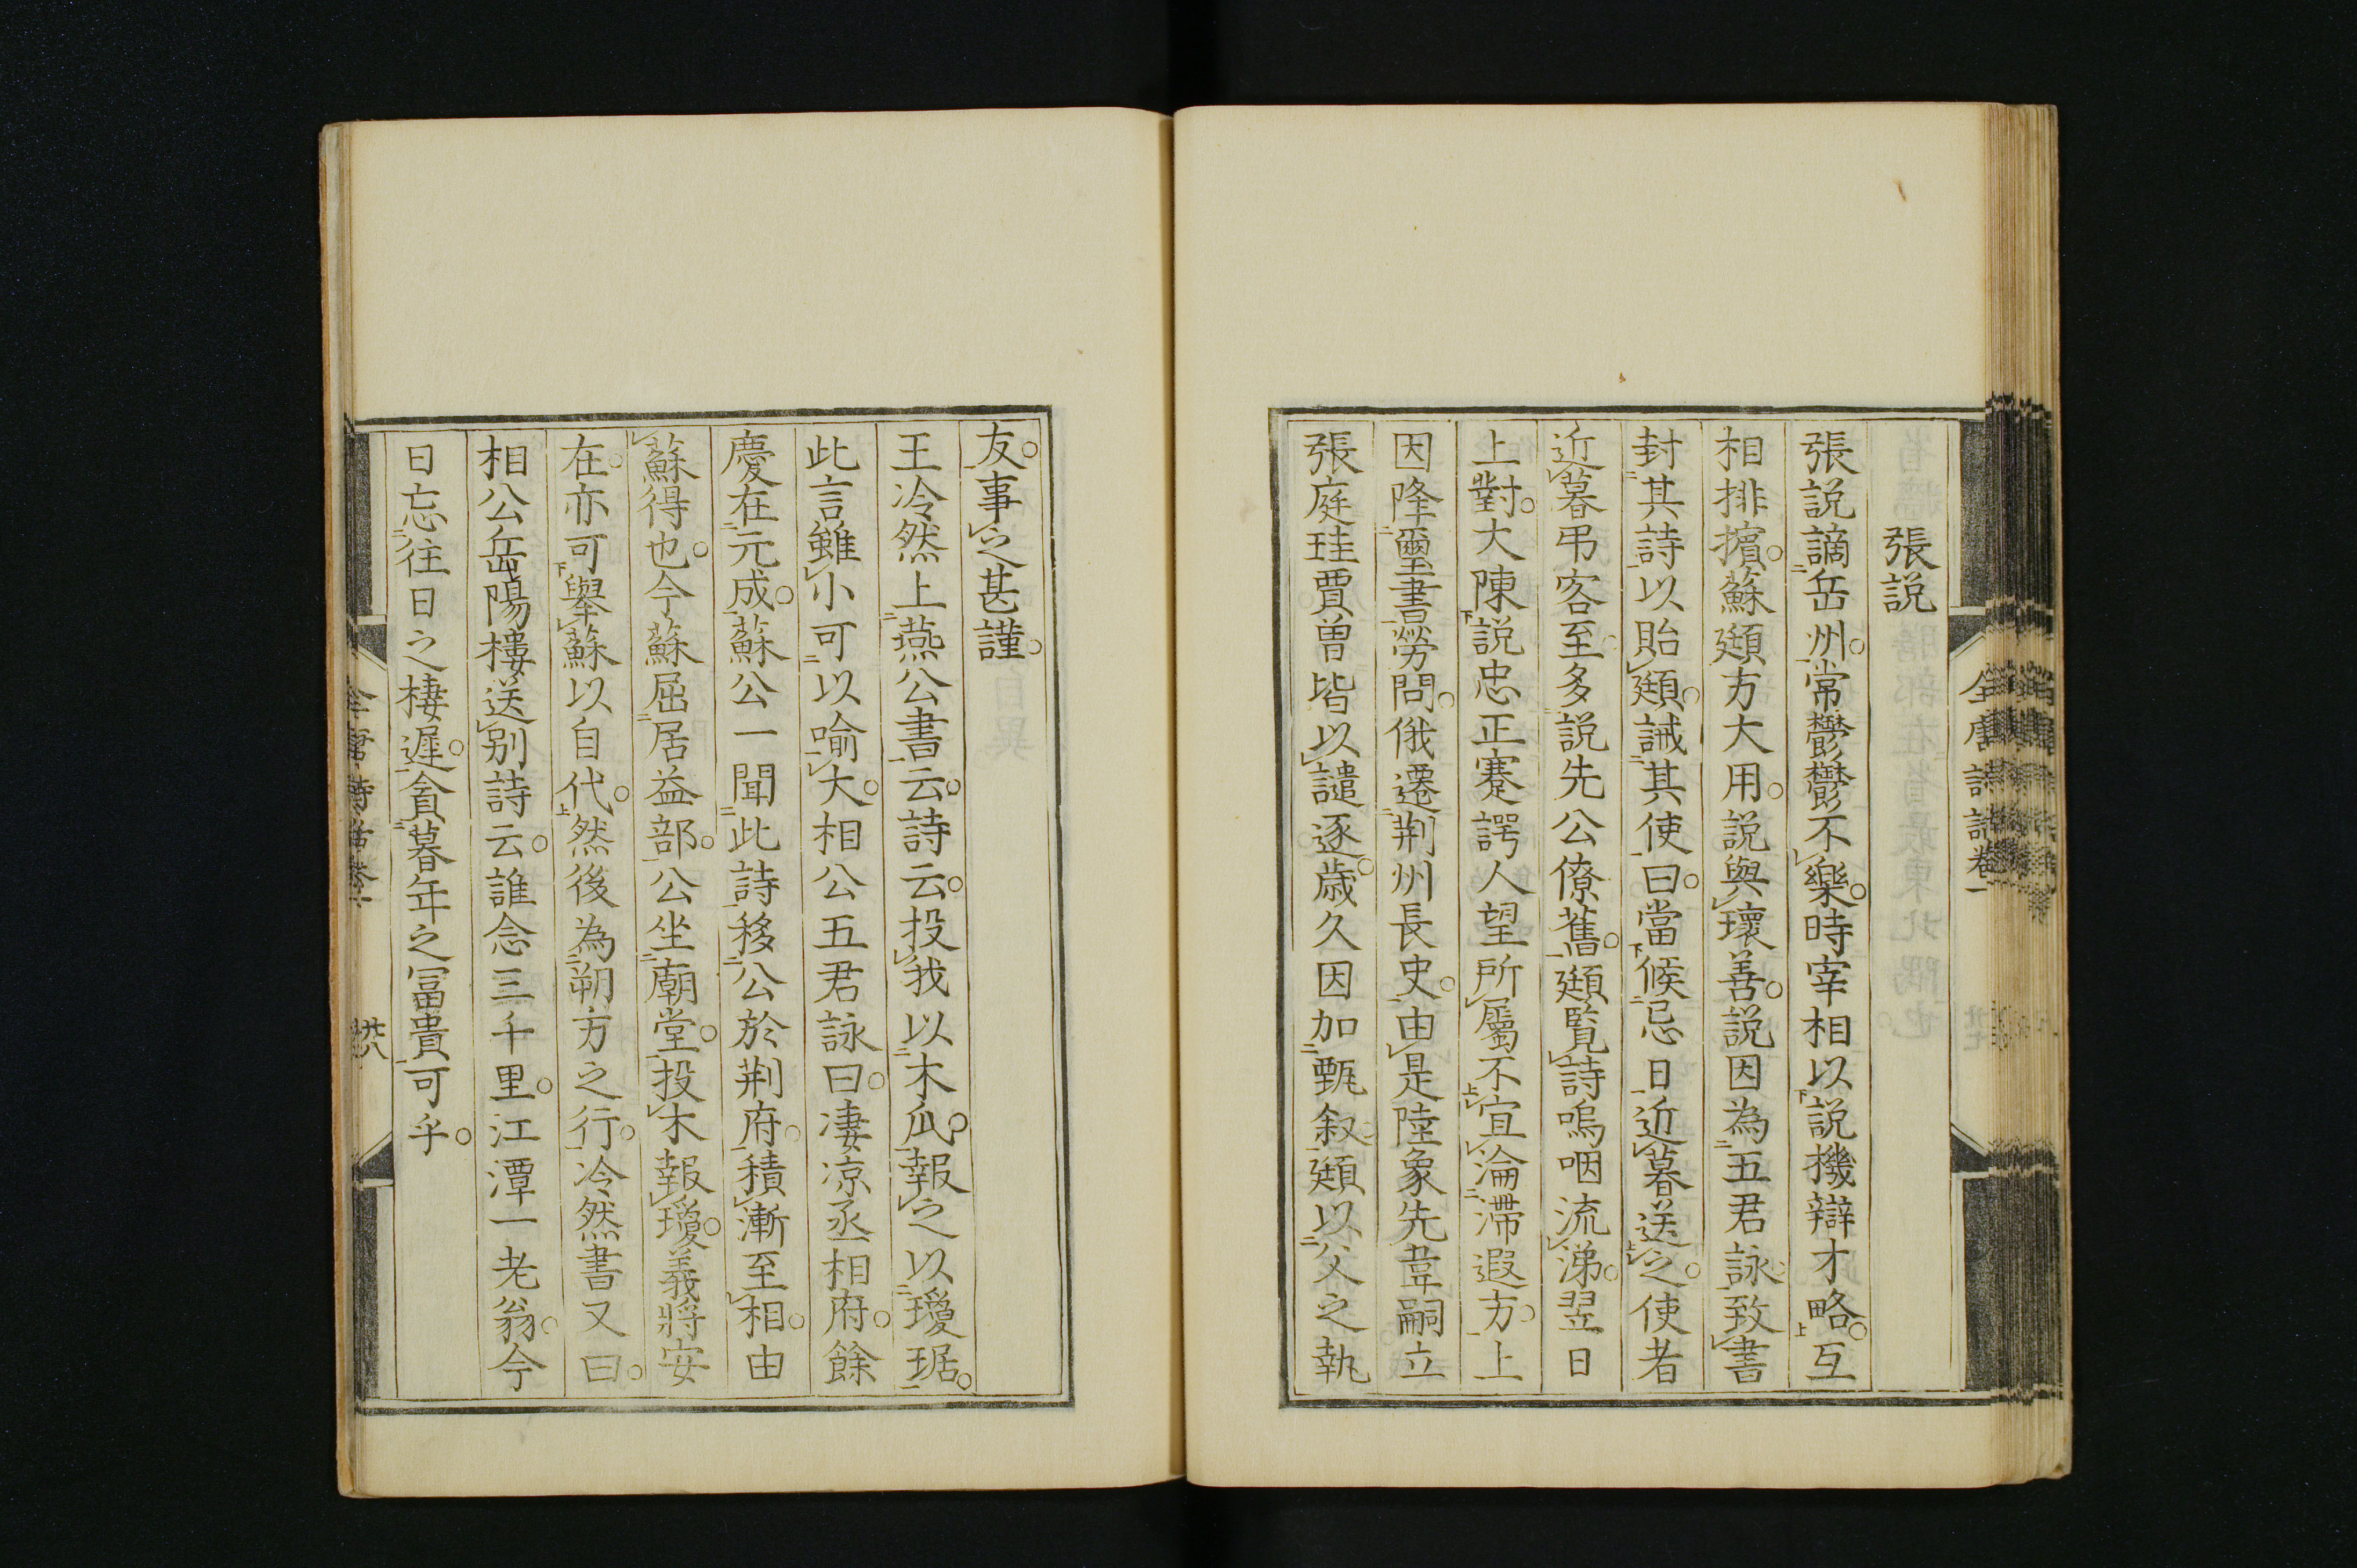 張説
張説謫岳州。常鬱鬱不樂。時宰相以説機辯才略。互
相排擯。蘇頲方大用。説與瓌善。説因為五君詠。致書
封其詩以貽頲。誡其使曰。當候忌日近暮送之。使者
近暮弔客至多説先公僚舊。頲覧詩嗚咽流涕。翌日
上對。大陳説忠正蹇諤人望所屬不宜淪滯遐方。上
因降璽書勞問。俄遷荆州長史。由是陸象先韋嗣立
張庭珪賈曽皆以譴逐。歳久因加甄叙。頲以父之執
友。事之甚謹。
王冷然上燕公書云。詩云。投我以木瓜。報之以瓊琚。
此言雖小可以喻大。相公五君詠曰。凄凉丞相府。餘
慶在元成。蘇公一聞此詩移公於荆府。積漸至相。由
蘇得也。今蘇屈居益部。公坐廟堂。投木報瓊。義將安
在。亦可擧蘇以自代。然後為朔方之行。冷然書又曰。
相公岳陽樓送别詩云。誰念三千里。江潭一老翁。今
日忘往日之棲遲。貪暮年之冨貴可乎。
全唐詩話卷一